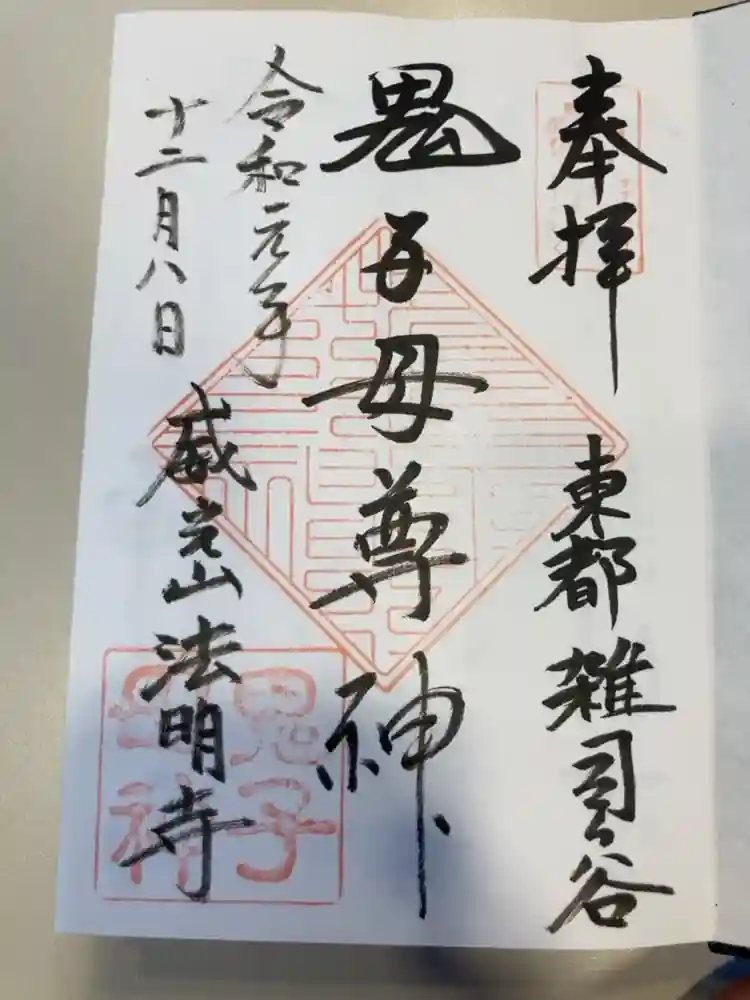 奉拝
東都雑司ヶ谷
鬼子母尊神
令和元年
十二月八日
威光山法明寺
鬼子
母神